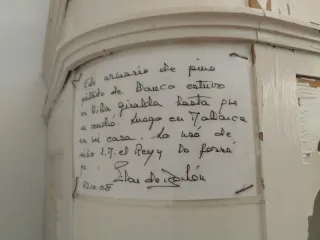 Este armario de pino
pintado de blanco estuvo
en Villa Giralda hasta que
se vendió. Luego en Mallorca
en mi casa. Lo usó de
niño S.M. el Rey y lo forré
yo.
Pilar de Borbón